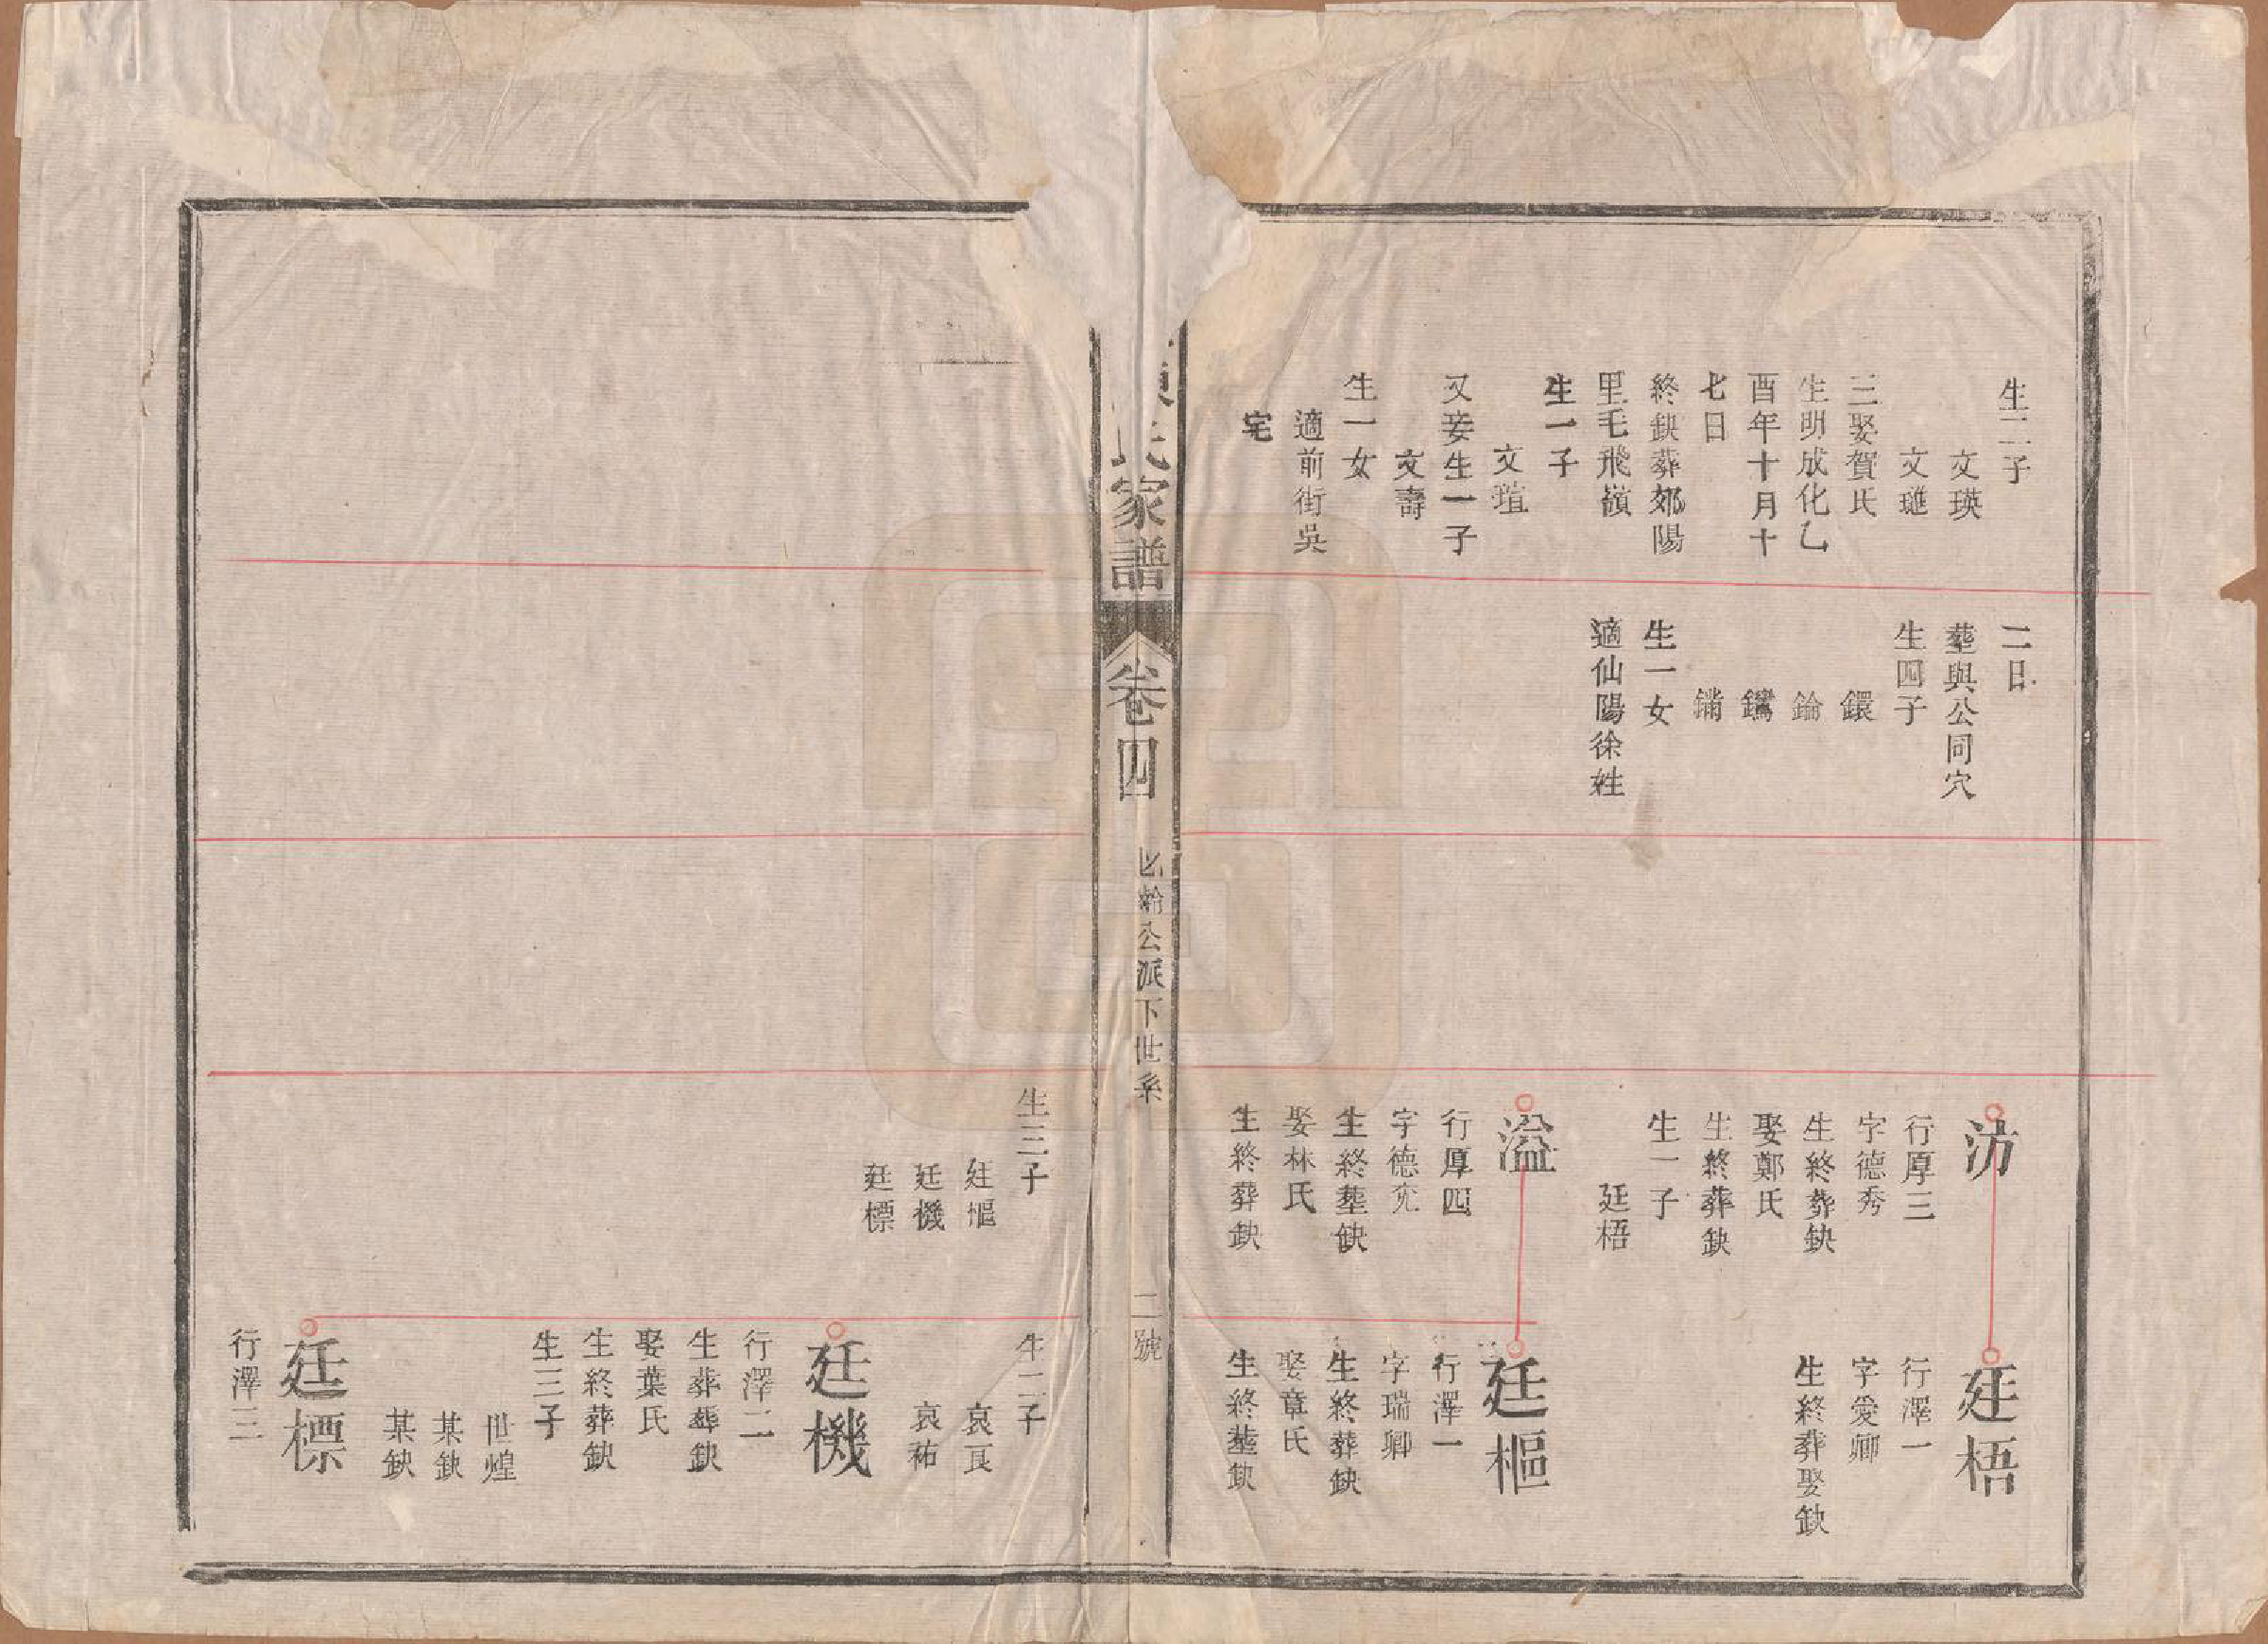 生二子
文瑛
文璡
三娶賀氏
生明成化乙
酉年十月十
七日
終缺葬郊陽
里毛飛嶺
生一子
文瑄
又妾生一子
文壽
生一女
適前街吳
宅
二日
塟與公同穴
生四子
鐶
錀
生一女
適仙陽徐姓
汸
行厚三
字德秀
生終葬缺
娶鄭氏
生終葬缺
生一子
廷梧
溢
行厚四
字德充
生終塟缺
娶林氏
生終葬缺
廷梧
行澤一
字愛卿
生終葬娶缺
廷樞
行澤一
字瑞卿
生終葬缺
娶章氏
生終塟缺
氏家譜
卷四
公派下世系
二號
生三子
廷樞
廷機
廷標
生二子
哀良
哀祐
廷機
行澤二
生葬葬缺
娶葉氏
生終葬缺
生三子
世煌
某缺
某缺
廷標
行澤三